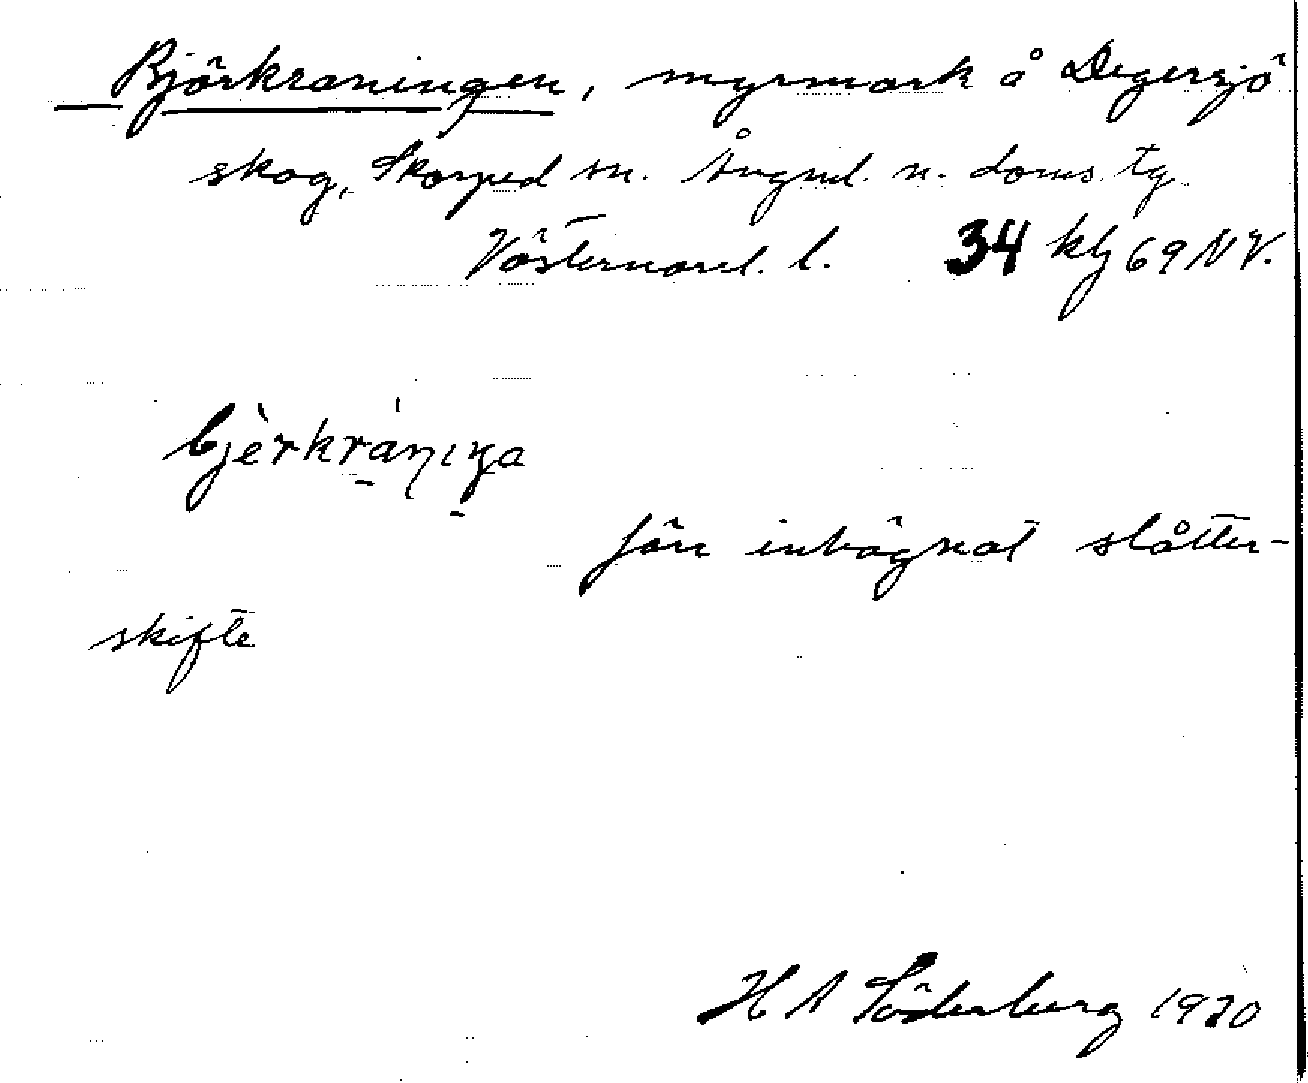 Björkraningen, myrmark å Degersjö
skog, Skorped sn. Ångml. n. doms. tg
Västernorrl. l. 34 kbj 69 NV.
bjèrkràṇıŋa
förr inhägnat slåtter-
skifte
H A Söderberg 1930